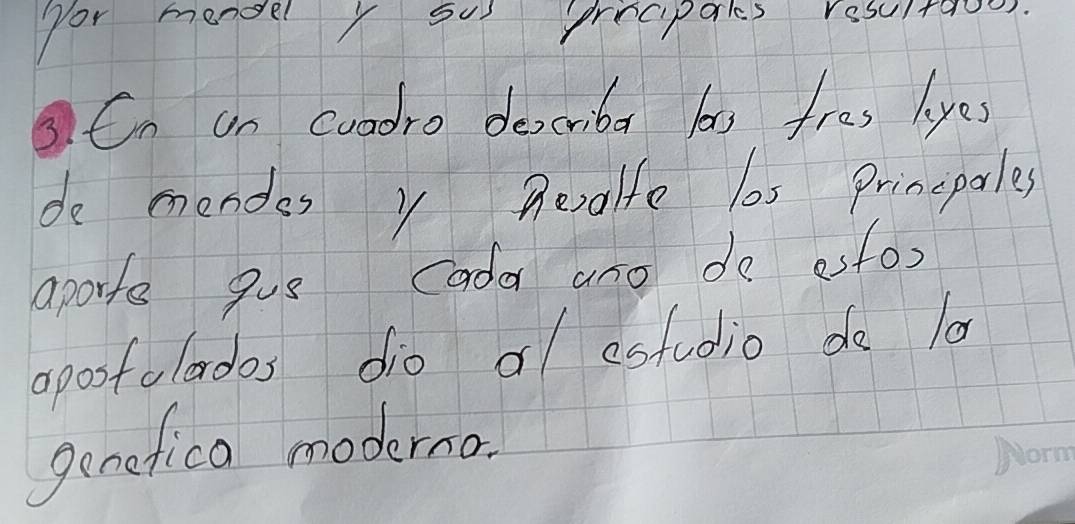 por mendel y sus principales resultados.
3. En un cuadro describa las tres leyes
de mendes y Resalte los Principales
aporte que cada uno de estos
apostulados dio al estudio de la
genetica moderna.
Norm